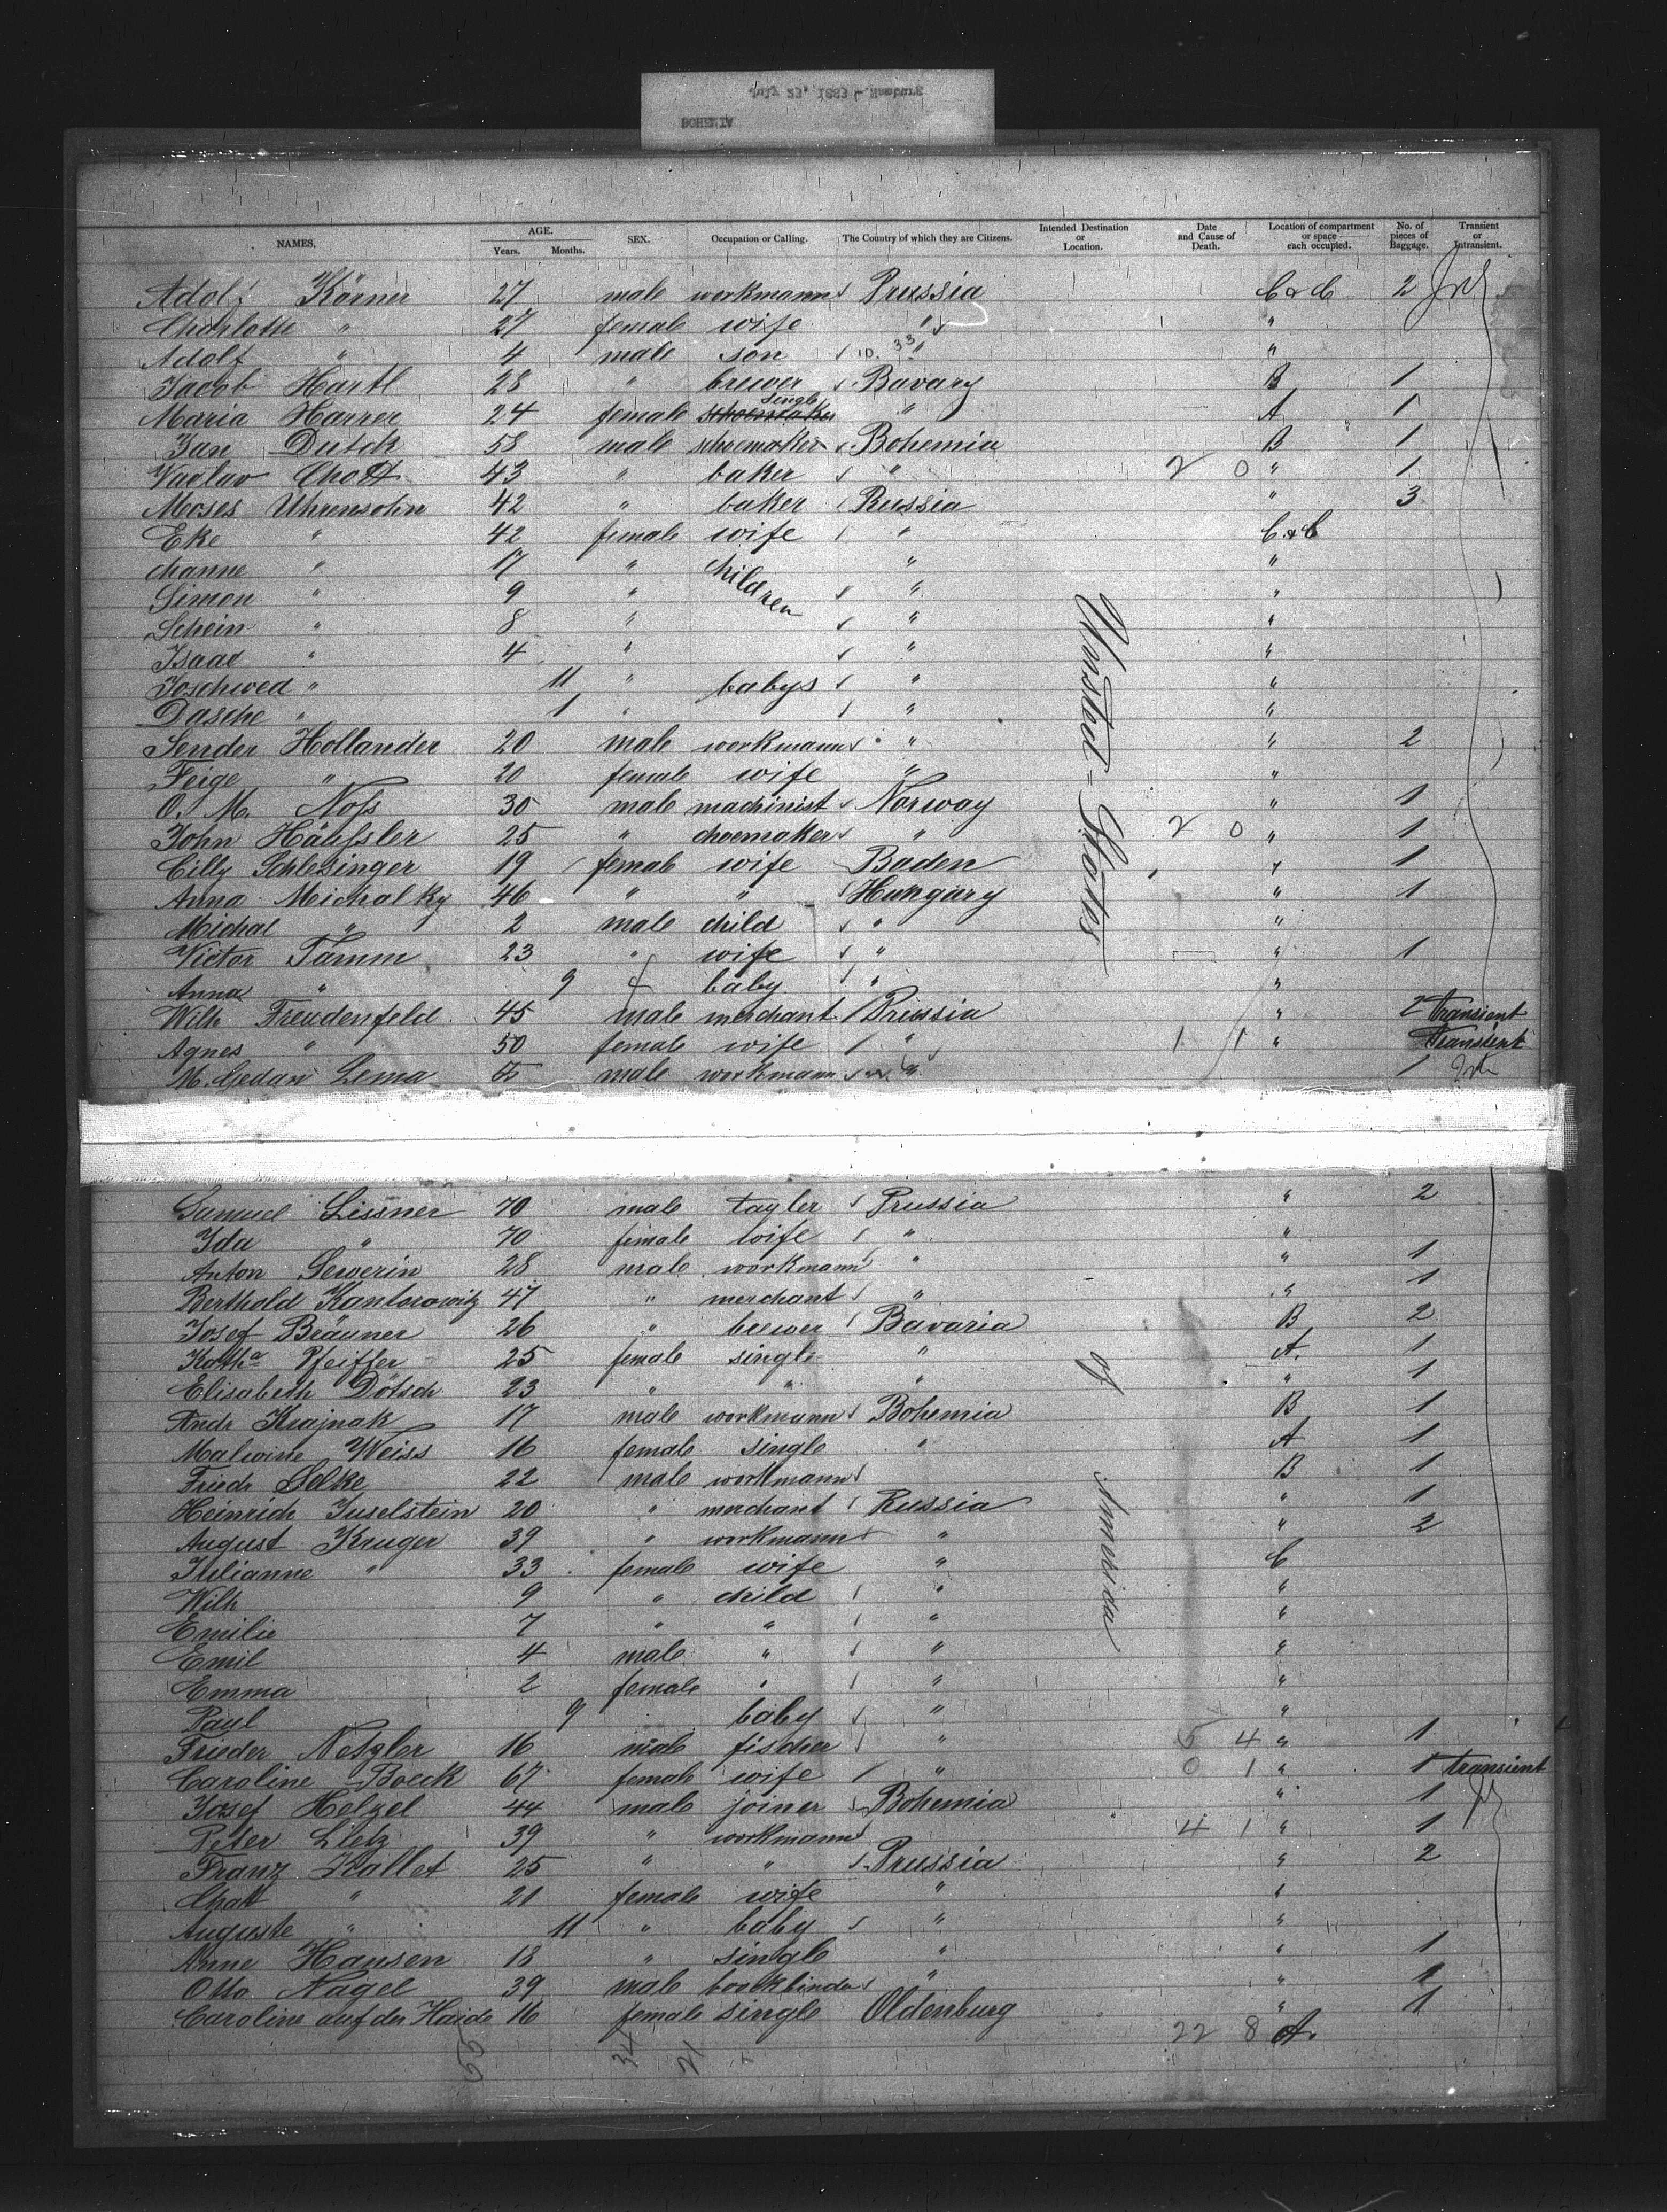 July 23, 1883 - Hamburg
BOHEMIA
NAMES. AGE. Years. Months. SEX. Occupation or Calling. The Country of which they are Citizens. Intended Destination or Location. Date and Cause of Death. Location of compartment or space each occupied. No. of pieces of Baggage. Transient or Intransient.
Adolf Körner 27 male workmann Prussia C & C 2
Charlotte " 27 female wife " "
Adolf " 4 male son " "
Jacob Hartl 28 " brewer Bavary B 1
Maria Harrer 24 female schoemaker single " A 1
Jan Dutck 58 male schoemaker Bohemia B 1
Vaclav Chott 43 " baker " 2 0 " 1
Moses Uhrensohn 42 " baker Russia " 3
Eke " 42 female wife " C & C
Channe " 17 " children " "
Simon " 9 " " "
Schein " 8 " " "
Isaac " 4 " " "
Joschwed " 11 " babys " "
Dasche " 1 " " "
Sender Hollander 20 male workmann " " 2
Feige " 20 female wife " "
O. M. Noss 30 male machinist Norway " 1
John Häussler 25 " choemaker " 2 0 " 1
Cilly Schlesinger 19 female wife Baden " 1
Anna Michalky 46 " " Hungary " 1
Michal " 2 male child " "
Victor Tamm 23 " wife " " 1
Anna " 9 f baby " "
Wilh Freudenfeld 45 male merchant Prussia " 2 transient
Agnes " 50 female wife " 1 1 " Transient
M. Gedan Lema male workmann " 1
United-States
Samuel Lissner 70 male tayler Prussia " 2
Ida " 70 female wife " "
Anton Sewerin 28 male workmann " " 1
Berthold Kantorowitz 47 " merchant " " 1
Josef Bräuner 26 " brewer Bavaria B 2
Katha Pfeiffer 25 female single " A. 1
Elisabeth Dötsch 23 " " " " 1
Andr Krajnak 17 male workmann Bohemia B 1
Malwine Weiss 16 female single " A 1
Friedr Selke 22 male workmann B 1
Heinrich Juselstein 20 " merchant Russia " 1
August Kruger 39 " workmann " " 2
Julianne " 33 female wife " C
Wilh 9 " child " "
Emilie 7 " " " "
Emil 4 male " " "
Emma 2 female " " "
Paul 9 baby " "
Frieder Netzler 16 male fischer " 5 4 " 1
Caroline Boeck 67 female wife " 0 1 " 1 transient
Josef Helzel 44 male joiner Bohemia " 1
Peter Lletz 39 " workmann 4 1 " 1
Franz Kallet 25 " " Prussia " 2
Chatt " 21 female wife " "
Auguste " 11 " baby " "
Anne Hansen 18 " single " " 1
Otto Nagel 39 male bookbinder " " 1
Caroline auf der Haide 16 female single Oldenburg " 1
of America
22 8 A.
55 34 21